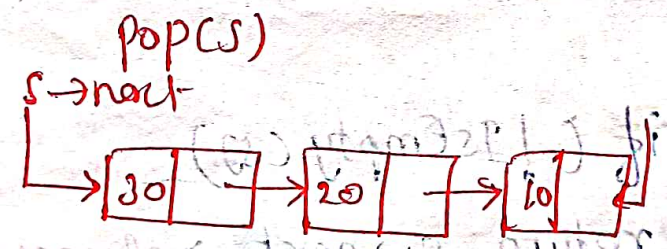 pop(s)
s→next
30 20 10